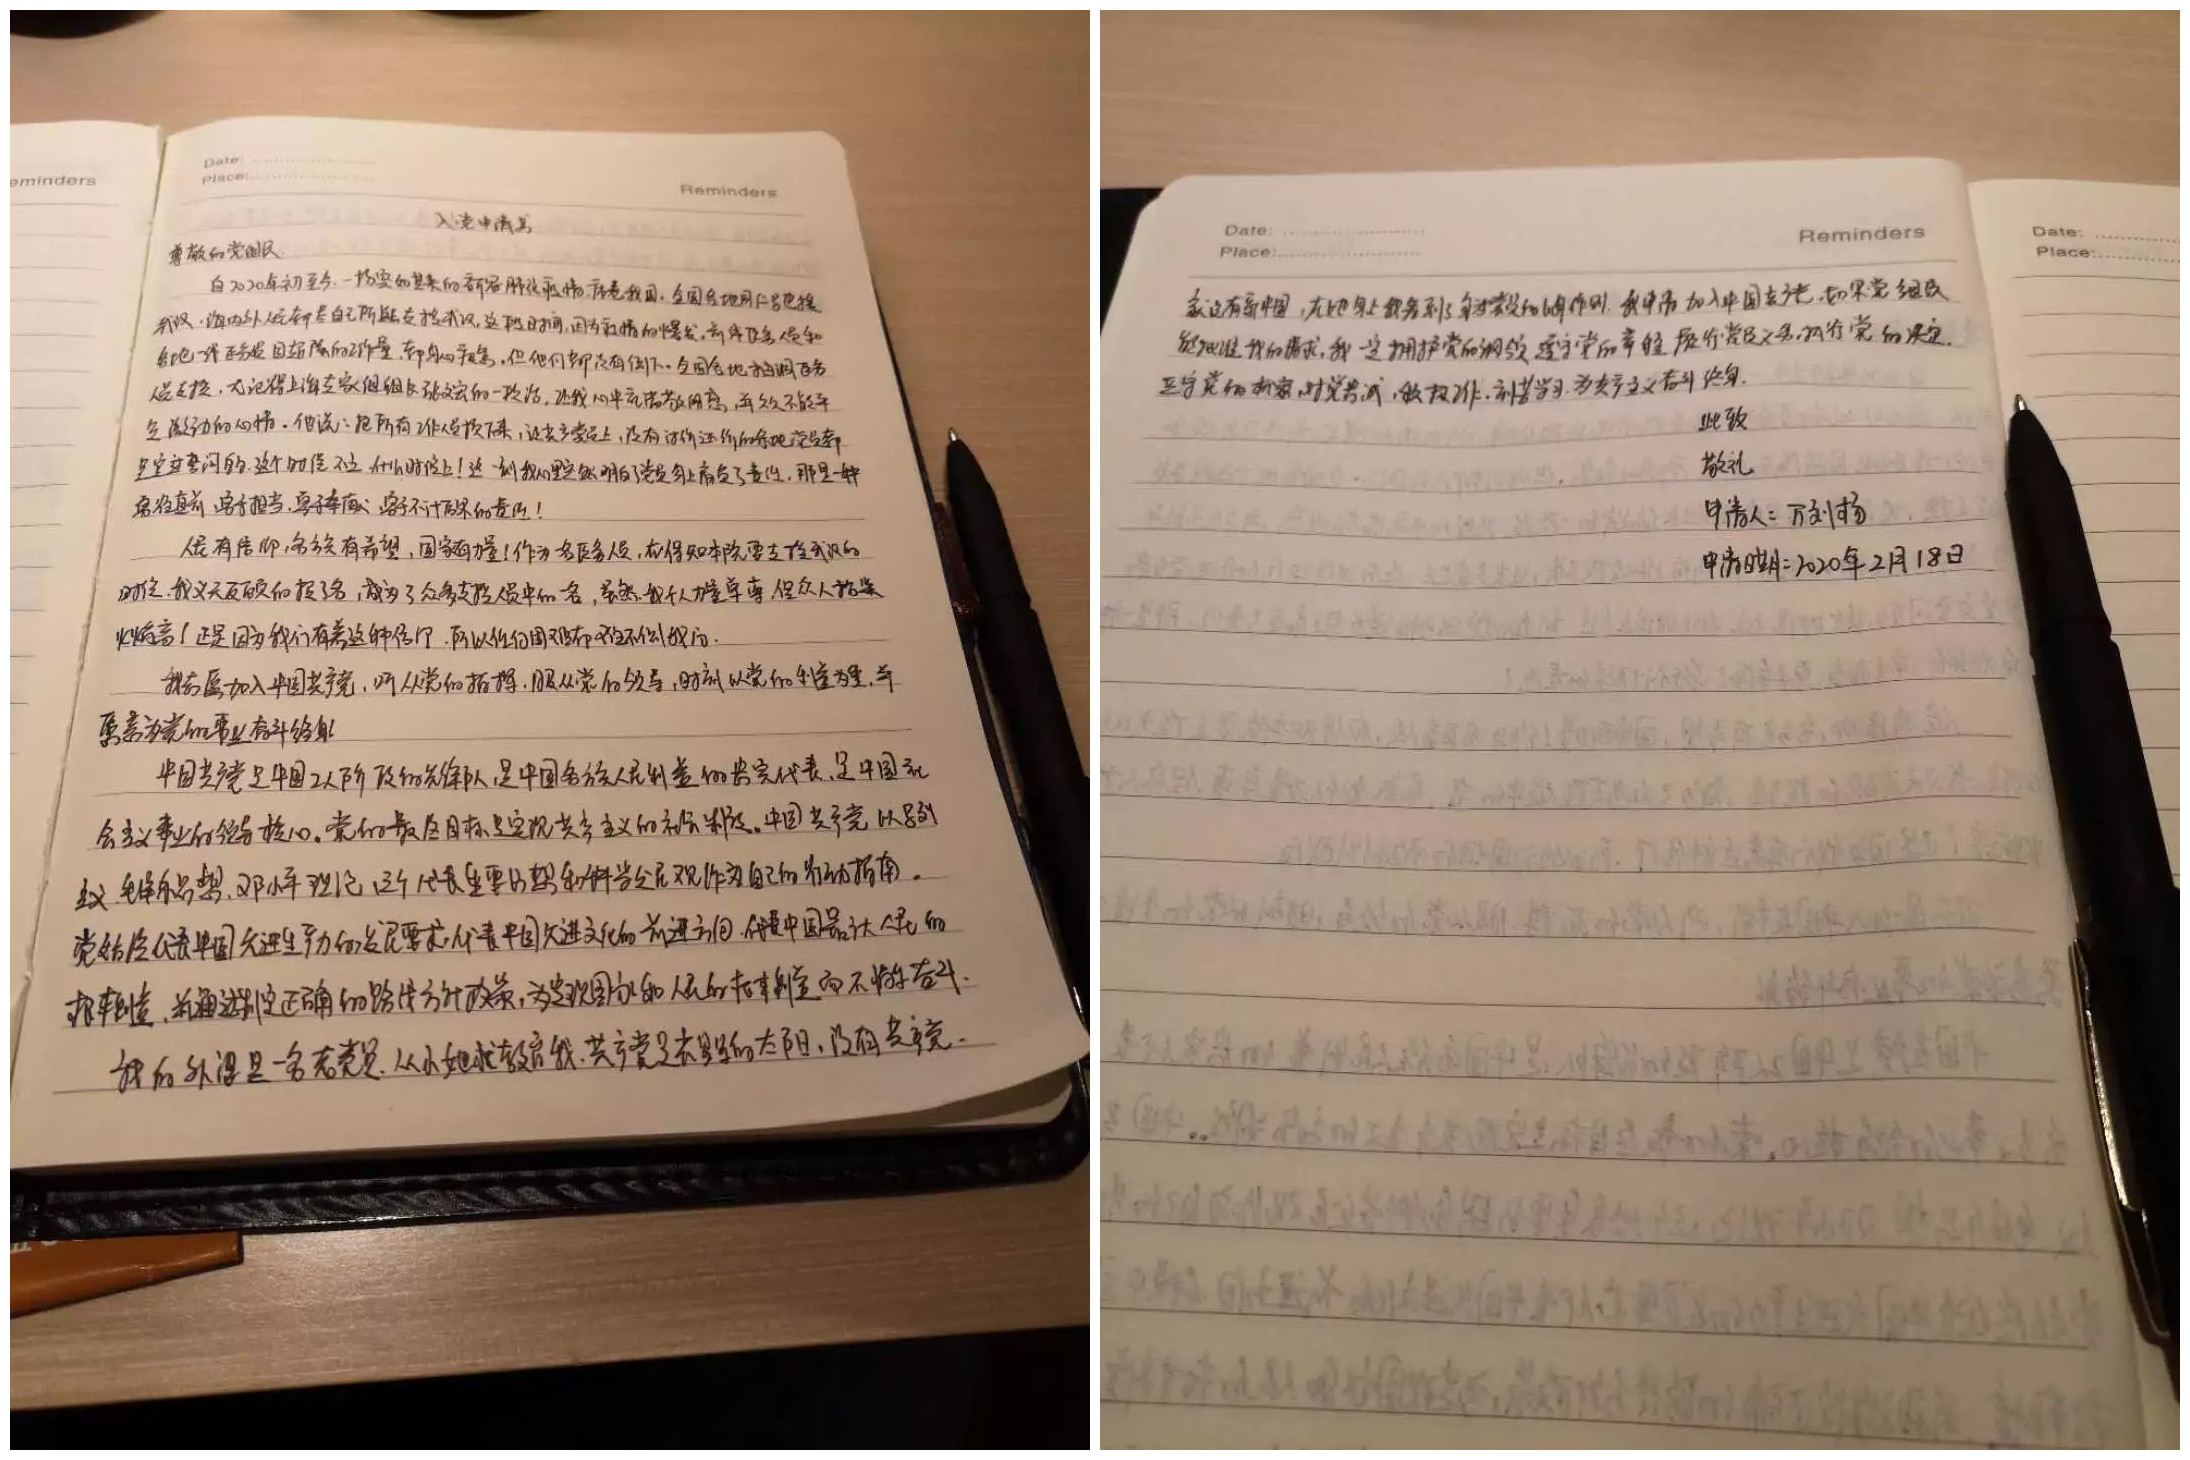 eminders
Date:
Place:
Reminders
入党申请书
尊敬的党组织
自2020年初至今,一场突如其来的新冠肺炎疫情席卷我国,全国各地用仁爱驰援
武汉,海内外人民都尽自己所能支持武汉,这段时间,因为疫情的爆发,前线医务人员和
各地一线医务人员超负荷的工作量,都身心疲惫,但他们都没有倒下。全国各地抽调医务
人员支援,尤记得上海专家组组长张文宏的一段话,让我心中充满敬佩感,并久久不能平
复激动的心情。他说:把所有工作人员换下来,让共产党员上,没有讨价还价的余地,党员都
是宣过誓问的,这个时候不上什么时候上!这一刻我心里突然明白了党员身上肩负了责任,那是一种
勇往直前,勇于担当,勇于奉献,勇于不计后果的责任!
人民有信仰,民族有希望,国家有力量!作为一名医务人员,在得知本院要支援武汉的
时候,我义无反顾的报了名,成为了众多支援人员中的一名,虽然我个人力量单薄,但众人拾柴
火焰高!正是因为我们有着这种信仰,所以任何困难都难不倒我们.
我志愿加入中国共产党,听从党的指挥,服从党的领导,时刻以党的利益为重,并
愿意为党的事业奋斗终身!
中国共产党是中国工人阶级的先锋队,是中国各族人民利益的忠实代表,是中国社
会主义事业的领导核心。党的最终目标是实现共产主义的社会制度。中国共产党以马列
主义,毛泽东思想,邓小平理论,三个代表重要思想和科学发展观作为自己的行动指南。
党始终代表中国先进生产力的发展要求,代表中国先进文化的前进方向,代表中国最广大人民的
根本利益,并通过制定正确的路线方针政策,为实现国家和人民的根本利益而不懈奋斗.
我的外婆是一名老党员,从小她就教育我,共产党是东升的太阳,没有共产党.
Date:
Place:
Reminders
就没有新中国,在她身上我看到了身为党员的模范作用.我申请加入中国共产党,如果党组织
能批准我的请求,我一定拥护党的纲领,遵守党的章程,履行党员义务,执行党的决定,
严守党的纪律,对党忠诚,积极工作,刻苦学习,为共产主义奋斗终身.
此致
敬礼
申请人:万刘杨
申请日期:2020年2月18日
Date:
Place: